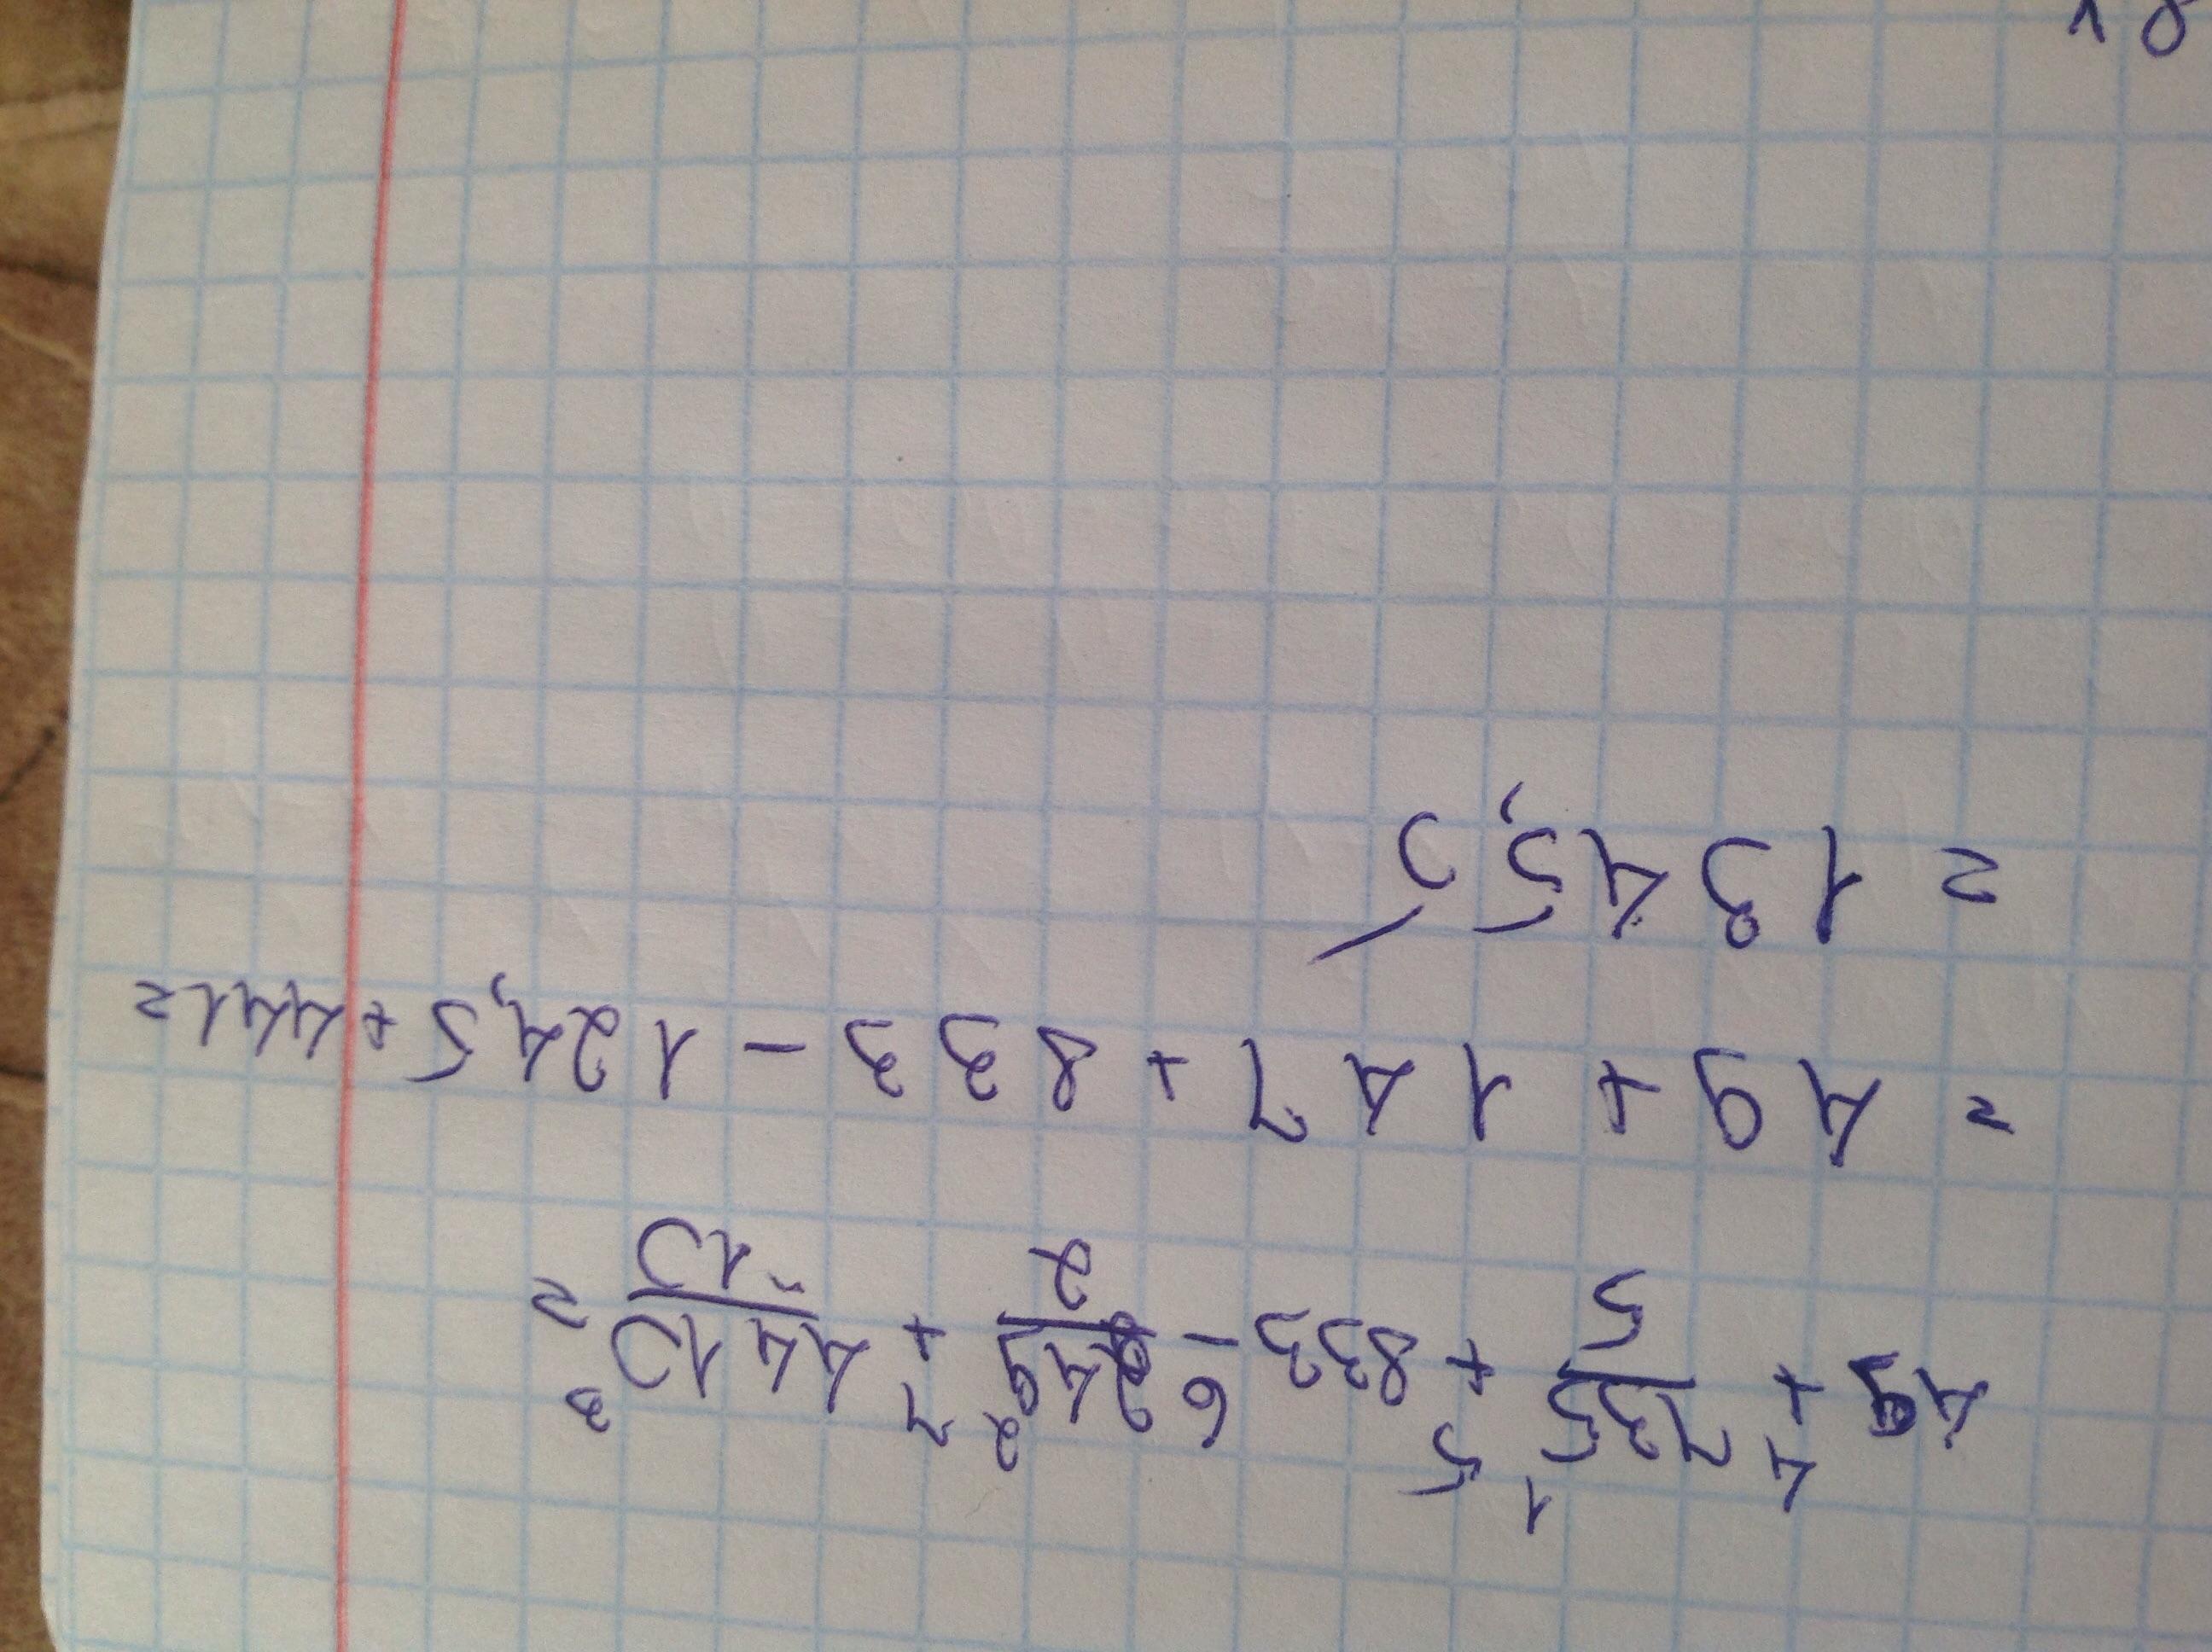 4 1 5 6 2 7 3
49 + 735/5 + 833 - 249/2 + 4410/10 =
= 49 + 147 + 833 - 124,5 + 441 =
= 1345,5